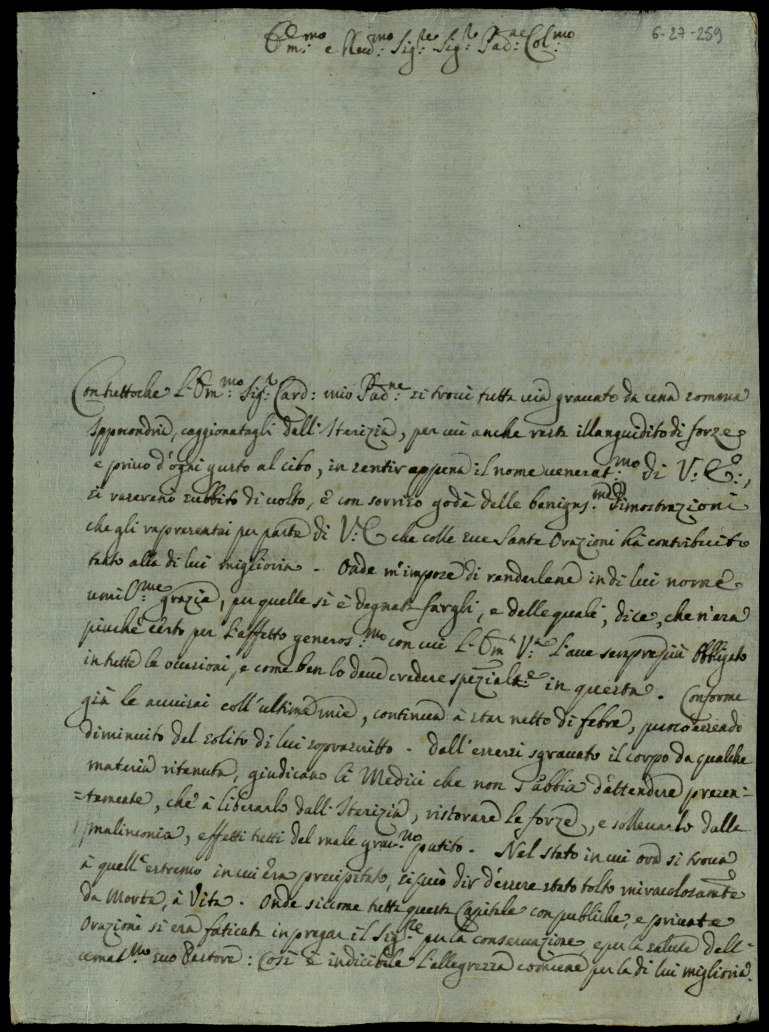 Em:mo e Rev:mo Sig:re Sig:r Pad:ne Col:mo
6-27-259
Contuttoche L'Em:mo Sig:r Card: mio Pad:ne si trovi tutta via gravato da una somma
Ippocondria, caggionatagli dall'Iterizia, per cui anche resta illanguidito di forze
e privo d'ogni gusto al cibo, in sentir appena il nome venerat:mo di V: E:,
si rasserenò subbito di volto, e con sorriso godè delle benigns:me dimostrazioni
che gli rappresentai per parte di V: E che colle sue Sante Orazioni hà contribuito
tanto alla di lui miglioria. Onde m'impose di renderlene in di lui nome
umil:me grazie, per quelle si è degnata fargli, e delle quali, dice, che n'era
piuche certo per l'affetto generos:mo con cui L'Em:a V:a l'ave sempre più obbligato
in tutte le occasioni, e come ben lo deve credere spezialte in questa. Conforme
già le avvisai coll'ultime mie, continua à star netto di febre, pur essendo
diminuito del solito di lui sopravitto. Dall'essersi sgravato il corpo da qualche
materia ritenuta, giudicano li Medici che non s'abbia d'attendere presen=
=tamente, chè à liberarlo dall'Iterizia, ristorare le forze, e sollevarlo dalle
malinconia, effetti tutti del male grav:mo patito. Nel stato in cui ora si trova
à quell'estremo in cui era precipitato, si può dir d'essere stato tolto miracolosamte
da Morte, à Vita. Onde siccome tutta questa Capitale con publiche, e private
Orazioni si era faticata in pregar il Sig:re per la conservazione, e per la salute dell'
amat:mo suo Pastore: Così è indicibile l'allegrezza comune per la di lui miglioria.